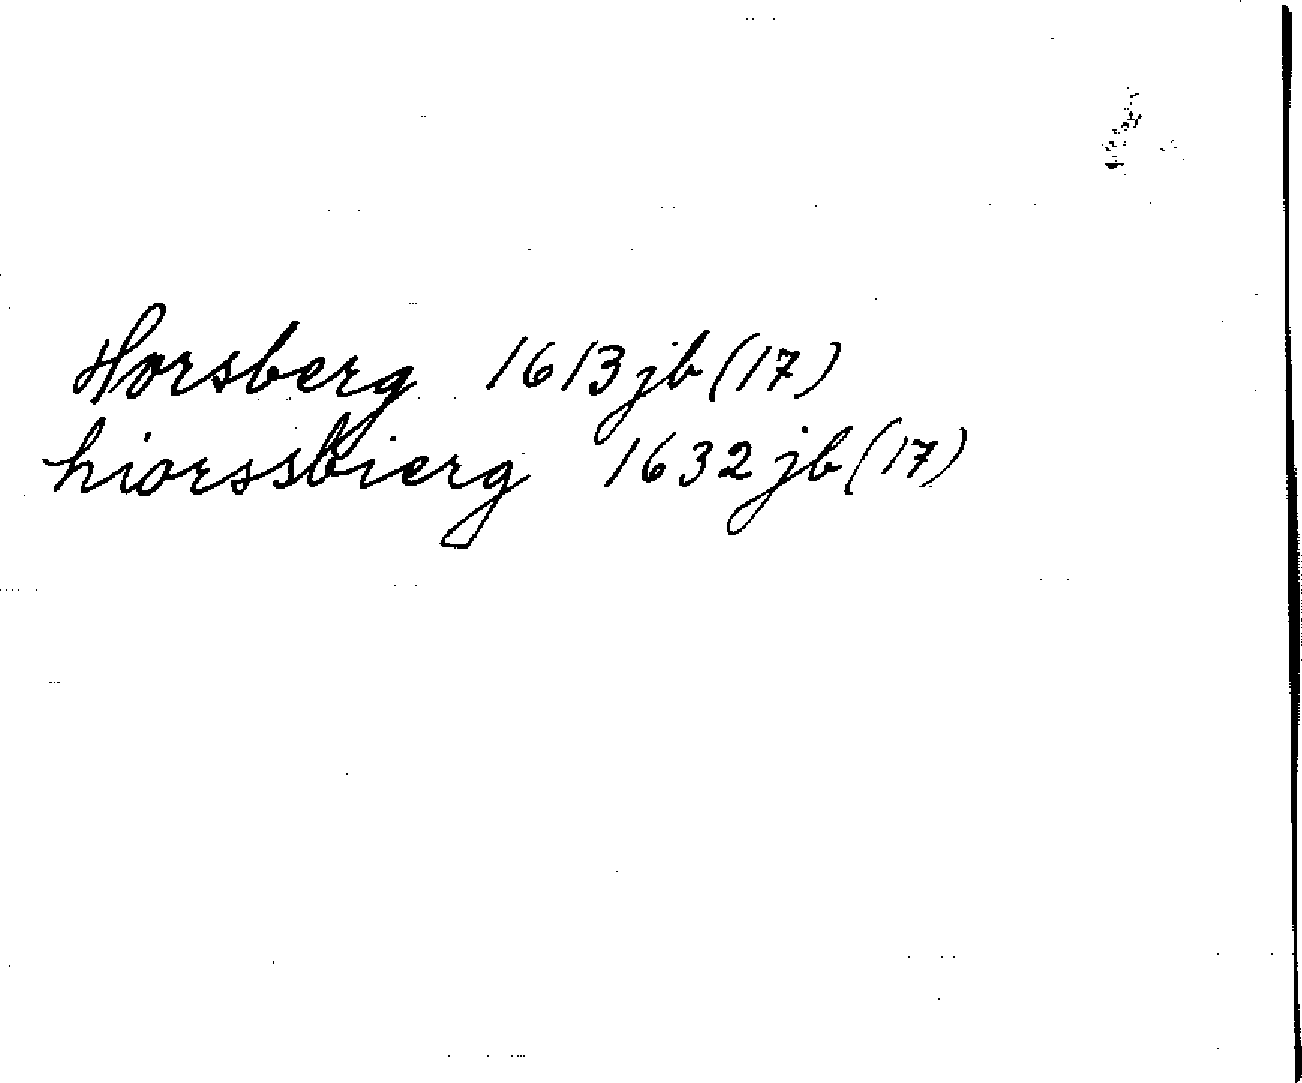 Horsberg 1613 jb (17)
hiorssbierg 1632 jb (17)